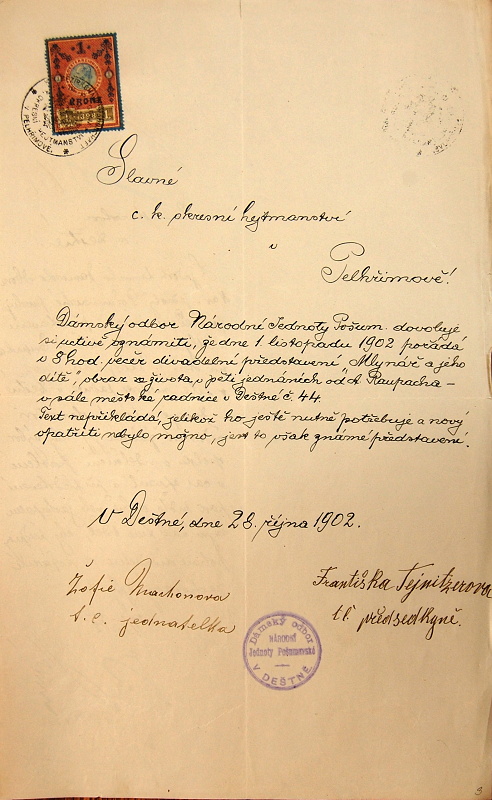 1
KRONA
V PELHŘIMOVĚ
HEJTMANSTVÍ
Slavné
c. k. okresní hejtmanství
v
Pelhřimově!
Dámský odbor Národní Jednoty Pošum. dovoluje
si uctivě oznámiti, že dne 1. listopadu 1902 pořádá
v 8 hod. večer divadelní představení „Mlynář a jeho
dítě“, obraz ze života v pěti jednáních od A. Raupacha –
v sále městské radnice v Deštné č. 44.
Text nepřikládá, jelikož ho ještě nutně potřebuje a nový
opatřiti nebylo možno, jest to však známé představení.
V Deštné, dne 28. října 1902.
Žofie Machonova
t. č. jednatelka
Františka Tejnitzerova
t. č. předsedkyně.
Dámský odbor
NÁRODNÍ
Jednoty Pošumavské
V DEŠTNÉ
3